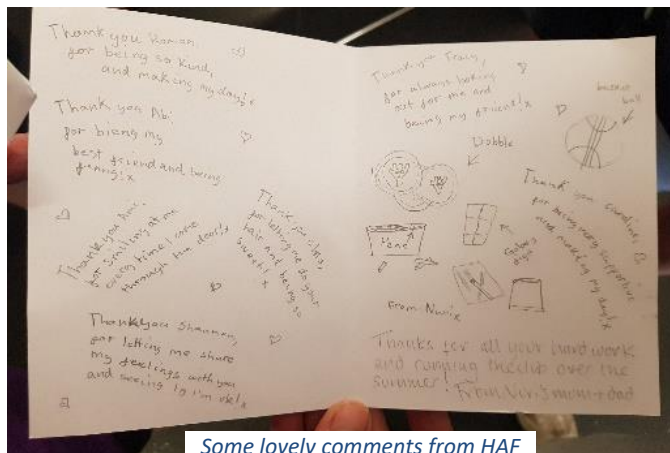 Thank you
for being so kind,
and making my day!x
Thank you Abi
for bieng my
best friend and being
funny!x
Thank you
for smiling at me
every time I come
through the door!x
Thank you
for letting me do your
hair and being so
sweet! x
Thank you Shannon,
for letting me share
my feelings with you
and seeing if I'm ok!x
Thank you Tracy,
for always looking
out for me and
being my friend!x
Dobble
ball
Thank you
for being very supportive
and making my day!x
From Nuri x
Thanks for all your hard work
and running the club over the
summer! From Nuri's mom + dad
Some lovely comments from HAF